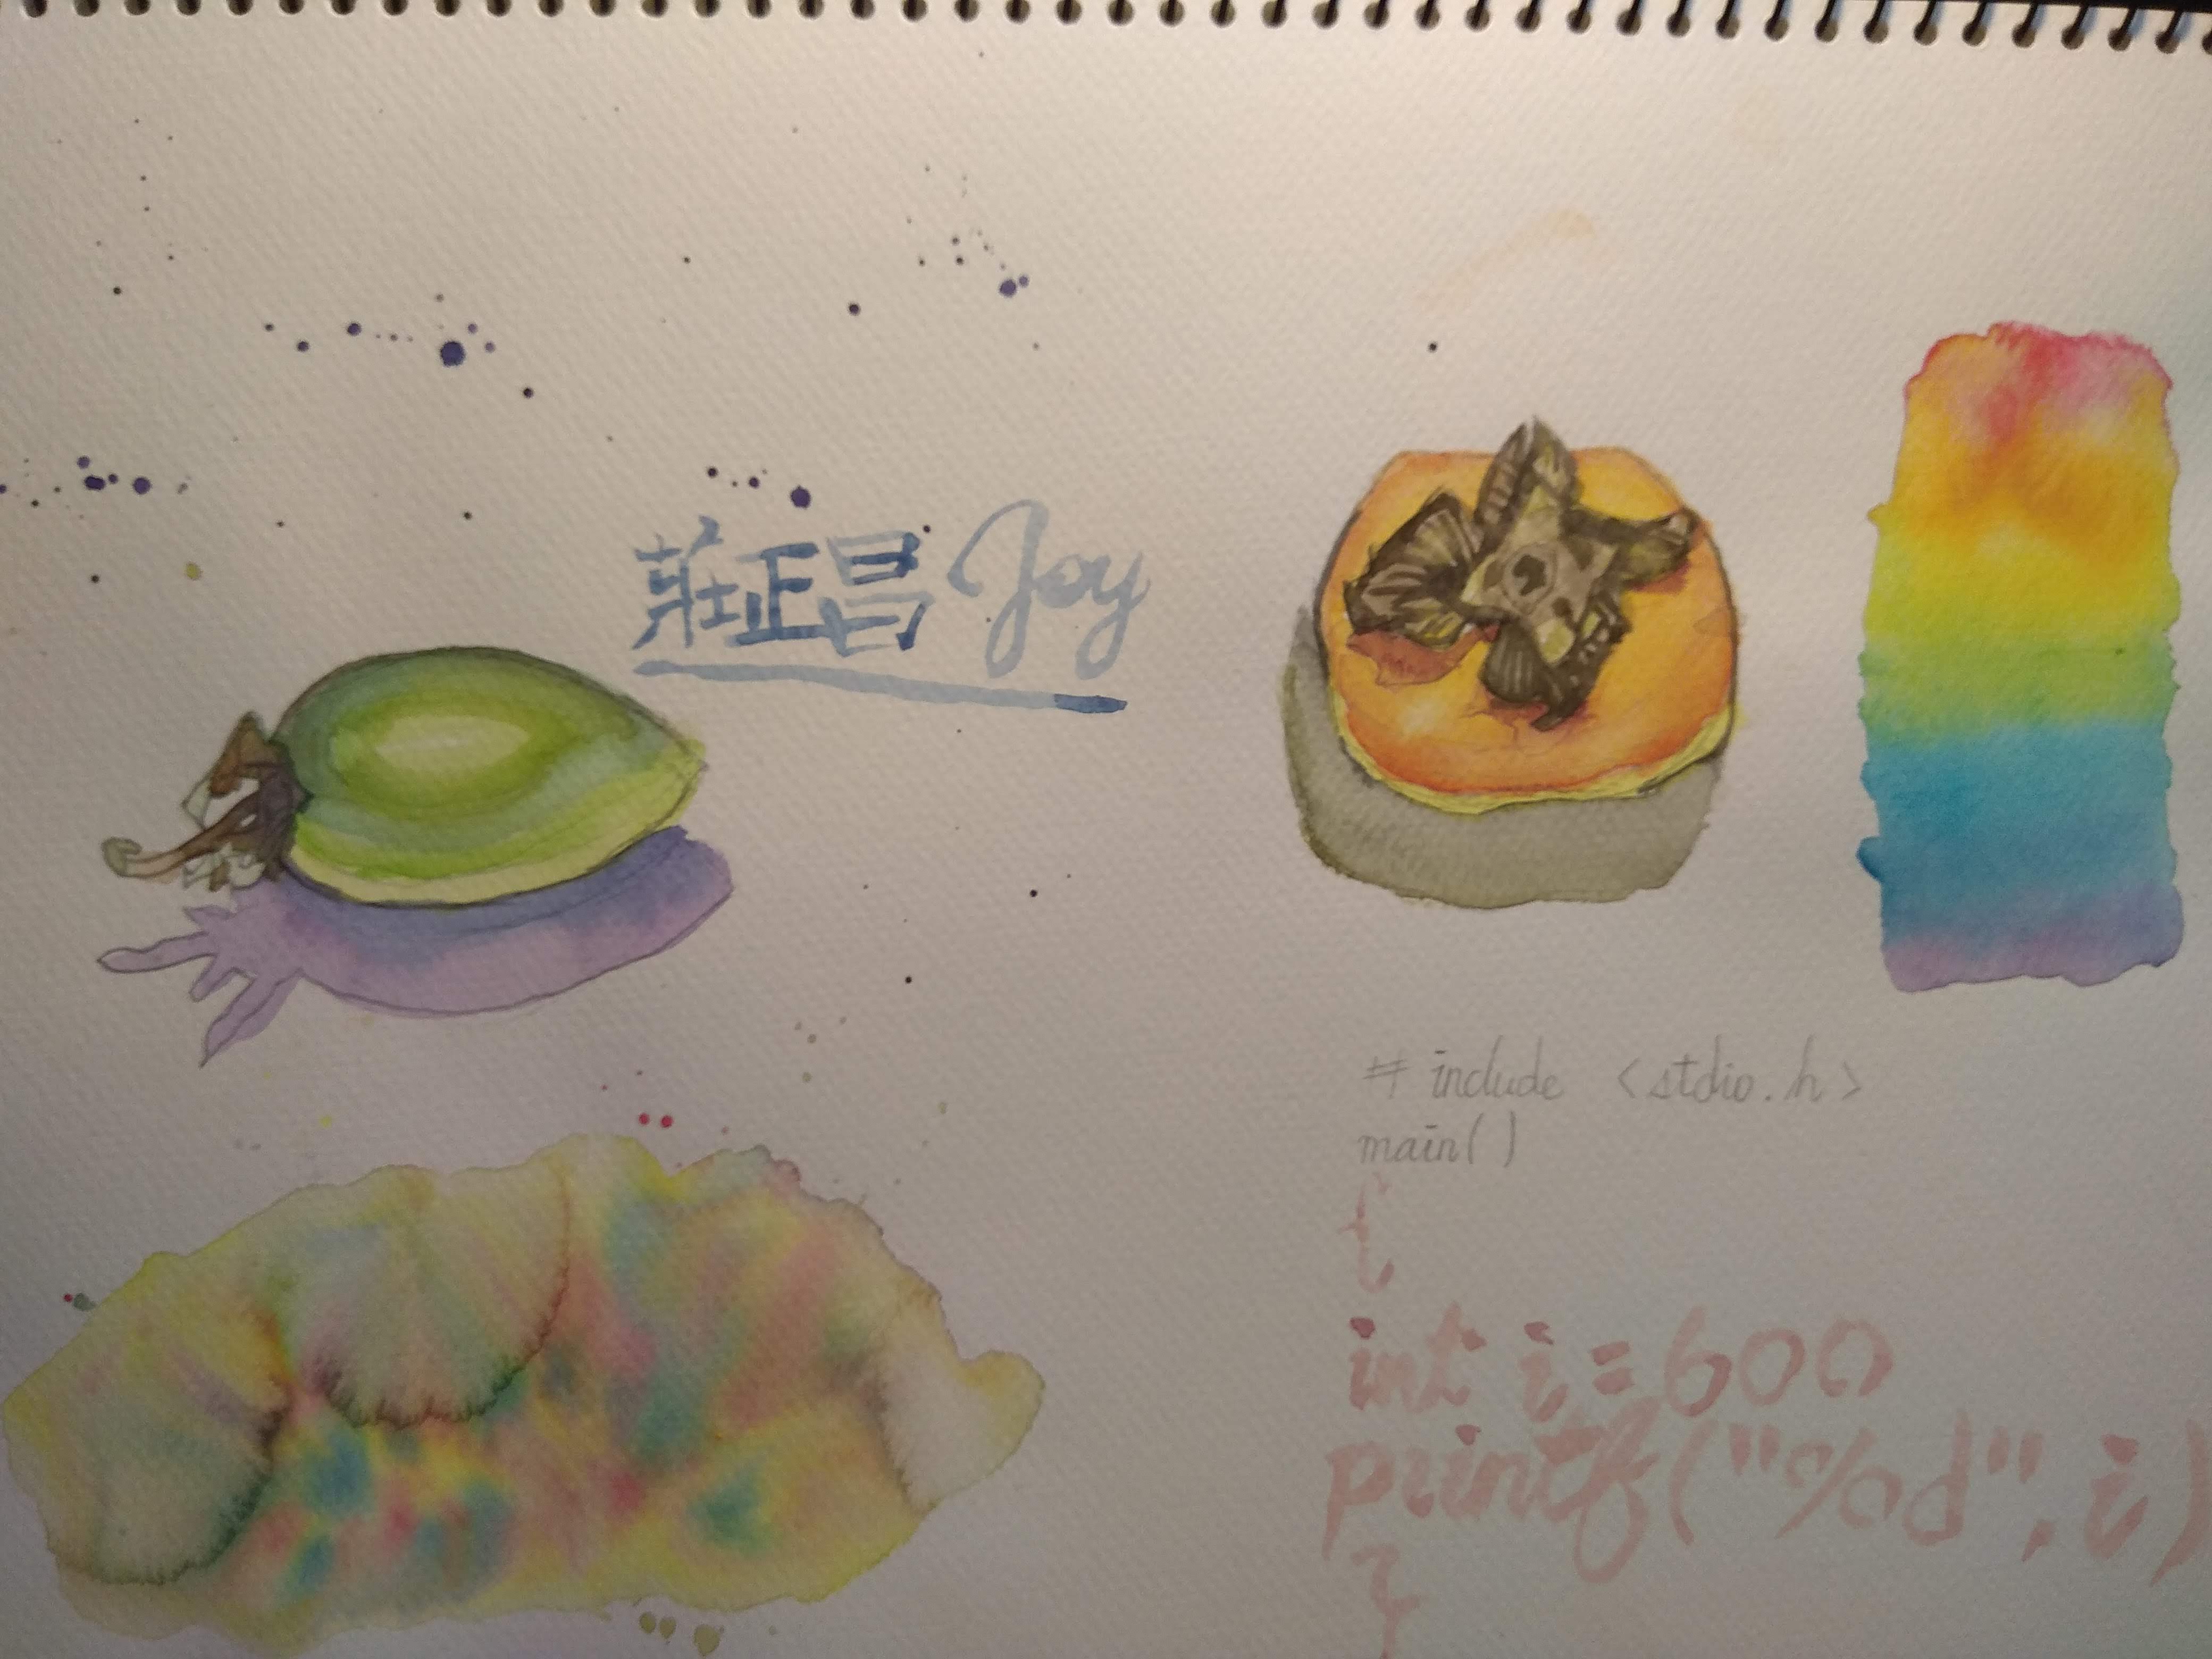 莊正昌 Joy
# include <stdio.h>
main()
{
int i=600
printf("%d",i)
}